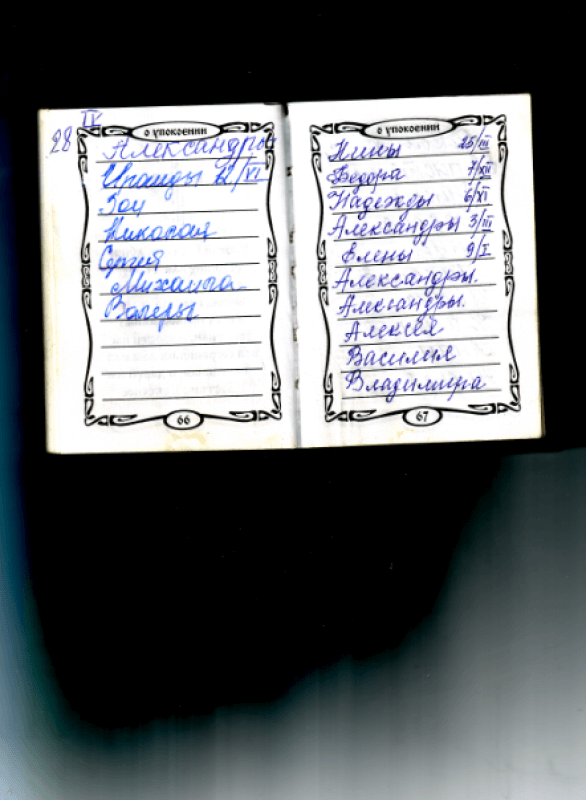 28 IV
о упокоении
Александры
Ираиды 22/VI
Зои
Николая
Сергея
Михаила
Валеры
66
о упокоении
Нины 25/III
Федора 7/XII
Надежды 6/XI
Александры 3/III
Елены 9/I
Александры.
Александры.
Алексея
Василия
Владимира
67